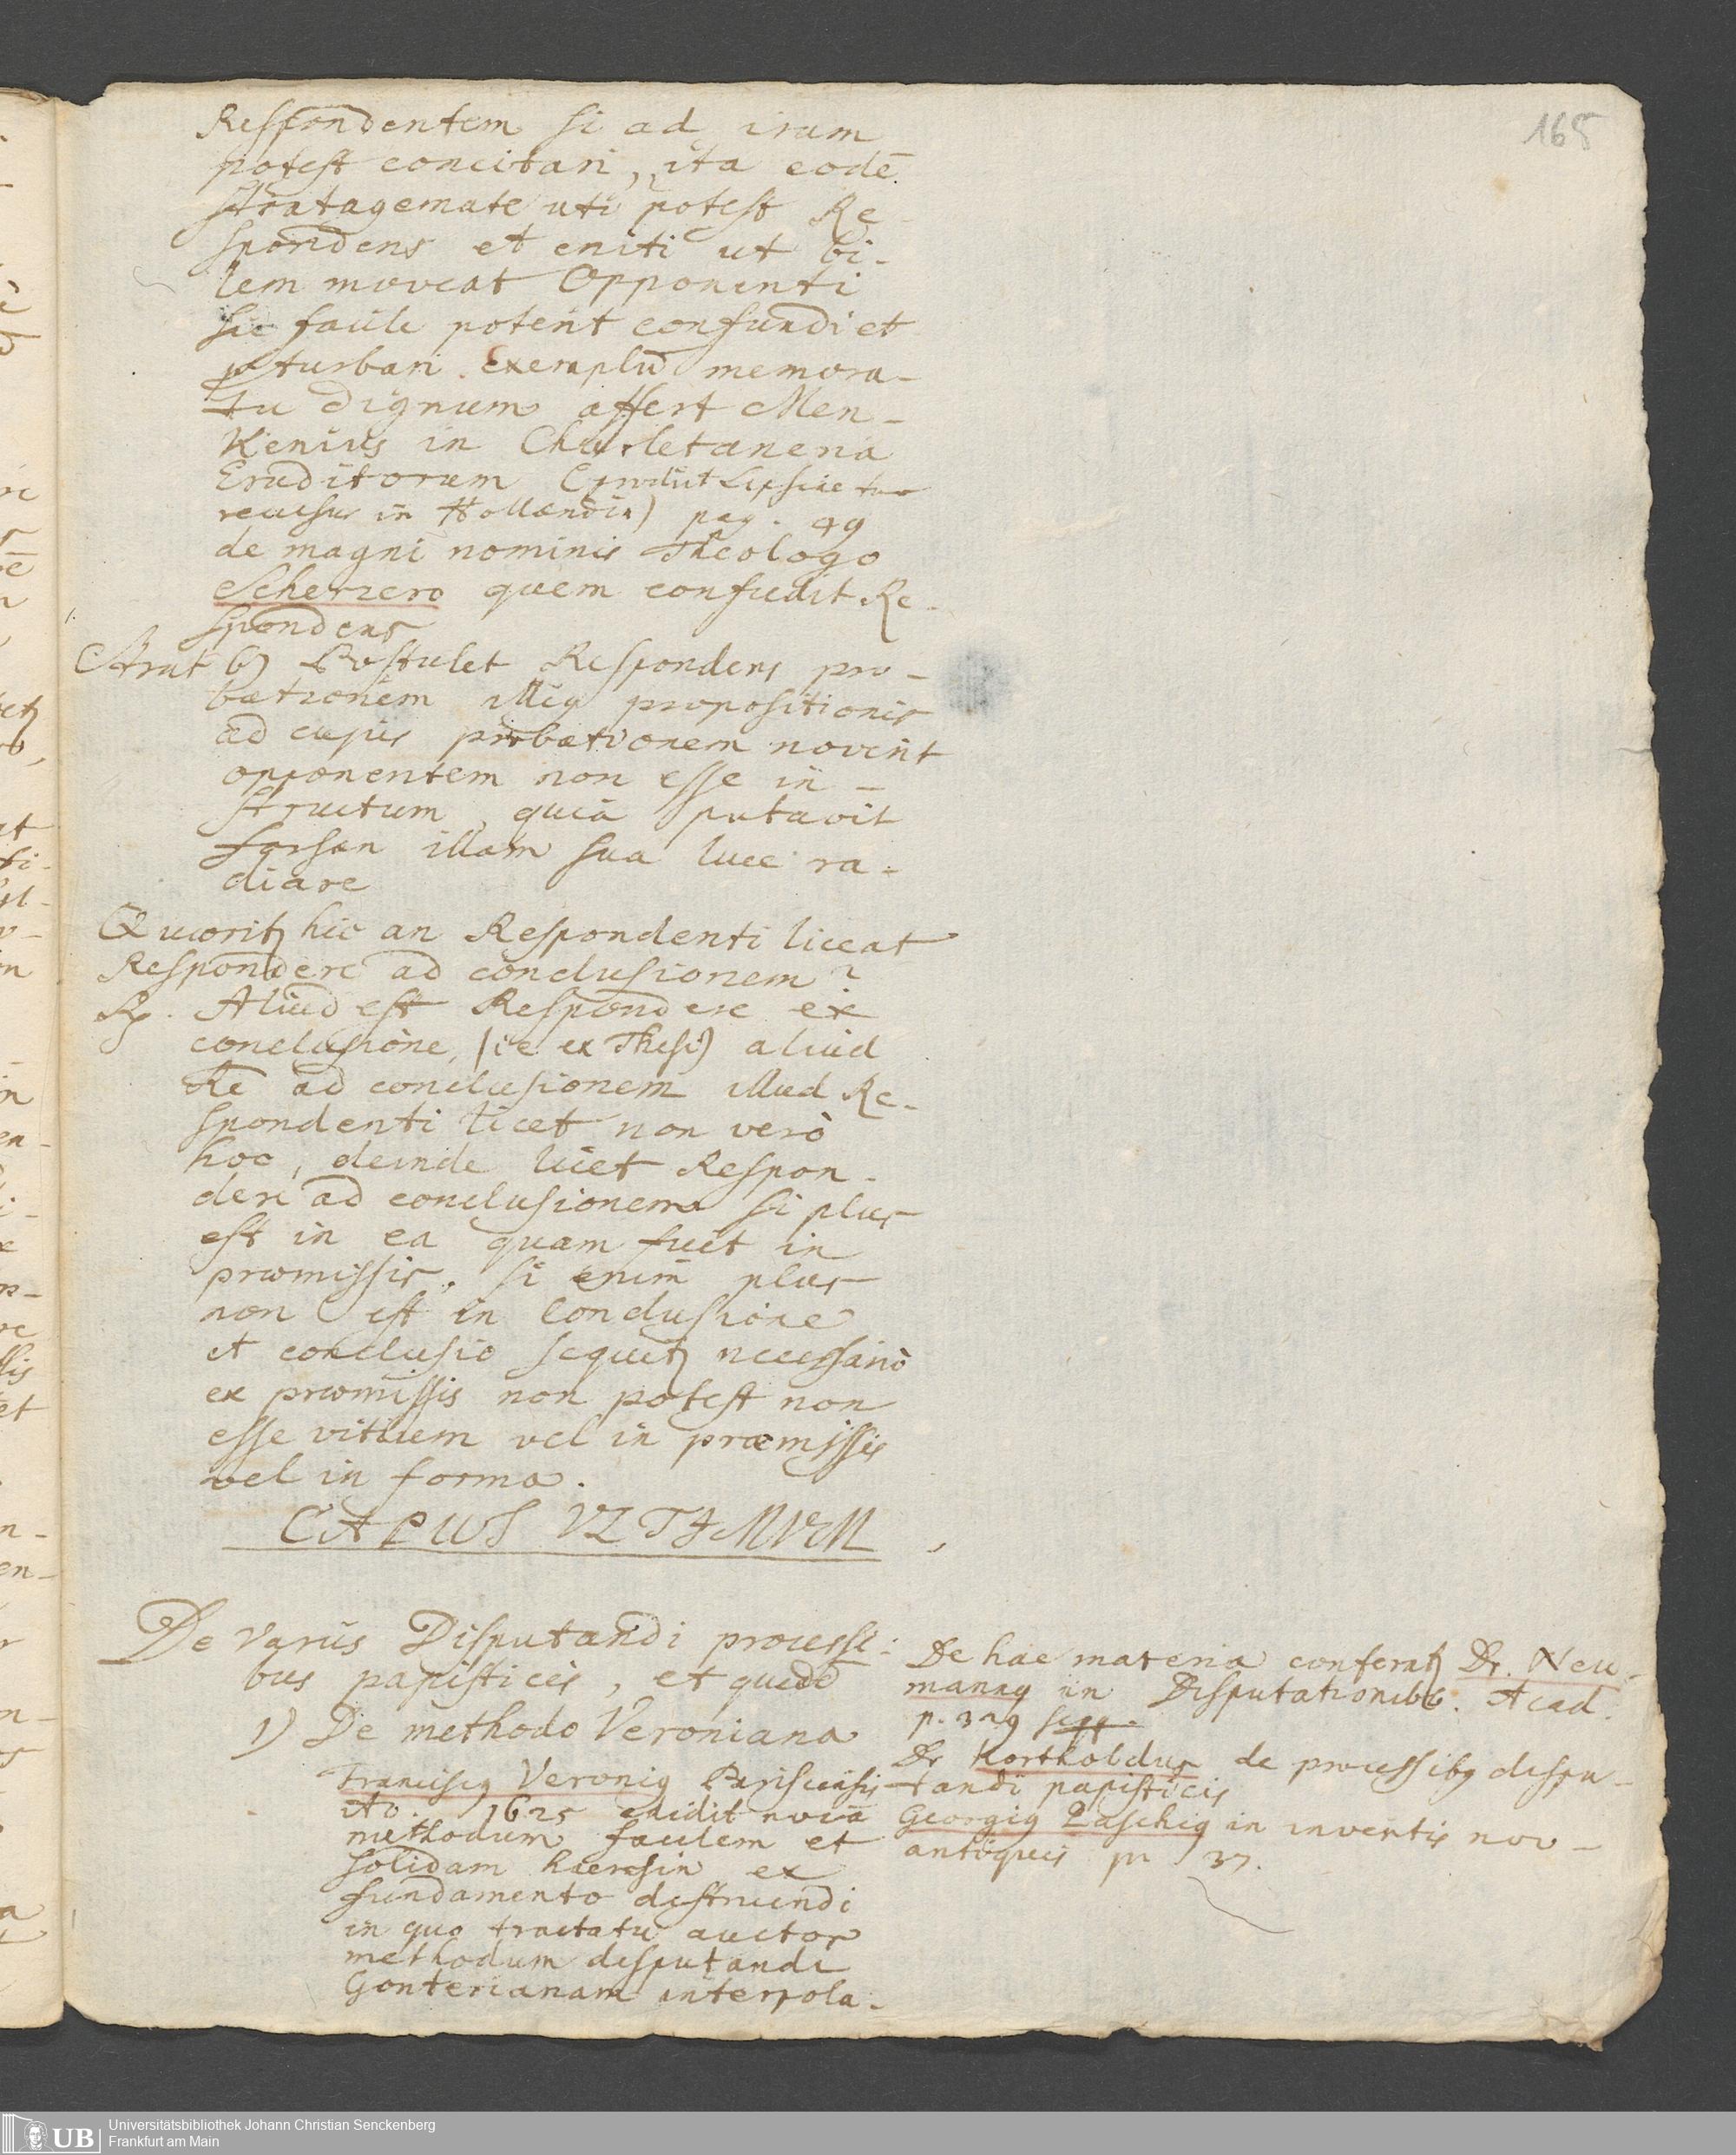 165
Respondentem si ad iram
potest concitari, ita eodē
stratagemate uti potest Re
spondens et eniti ut bi-
lem moveat Opponenti
sic facile poterit confundi et
pturbari. Exemplū memora-
tu dignum affert Men-
kenius in Charletaneria
Eruditorum (prodiit Lipsiae
recusus in Hollandia) pag. 49
de magni nominis Theologo
Scherzero quem confudit Re-
spondens
Strat 6) Postulet Respondens pro-
bationem illig propositionis
ad cujus probationem noverit
opponentem non esse in-
structum, quia putavit
forsan illam sua luce ra-
diare
Quæritʒ hic an Respondenti liceat
Respondere ad conclusionem?
Rp. Aliud est Respondere ex
conclusione, (i e ex Thesi) aliud
Re ad conclusionem illud Re-
spondenti licet non verò
hoc, deinde licet Respon-
dere ad conclusionem si plus
est in ea quam fuit in
præmissis, si enim plus
non est in Conclusione
et conclusio sequitʒ necessariò
ex præmissis non potest non
esse vitium vel in præmissis
vel in forma.
CAPUT VLTIMVM
De Variis Disputandi processi-
bus papisticis, et quidē
1) De methodo Veroniana
Franciscq Veroniq Parisiensis
Ao. 1625 edidit
methodum facilem et
solidam hæresin ex
fundamento destruendi
in quo tractatu auctor
methodum disputandi
Gonterianam interpola-
De hac materia conferatʒ Dr. Neu-
mannq in Disputationibʒ. Acad.
p. 329 seqq.
Dr Kortholdus de processibq dispu-
tandi papisticis
Georgiq Paschiq in inventis nov-
antiquis p 37.
UB Universitätsbibliothek Johann Christian Senckenberg
Frankfurt am Main